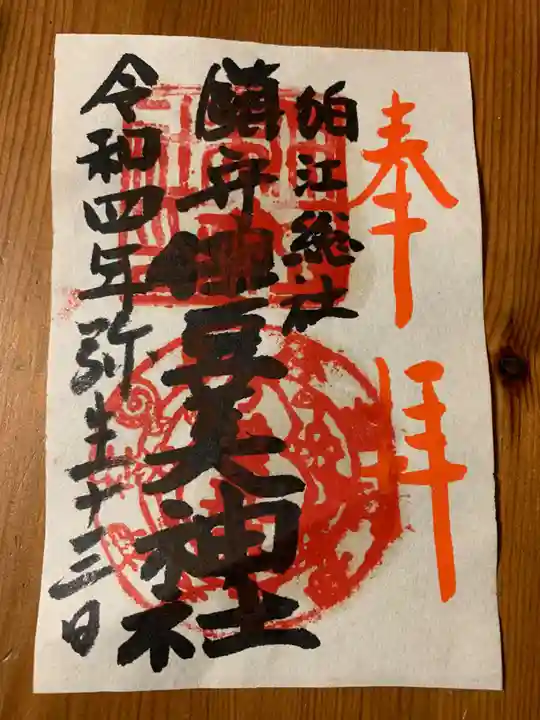 奉拝
狛江総社
伊豆美神社
令和四年弥生十三日